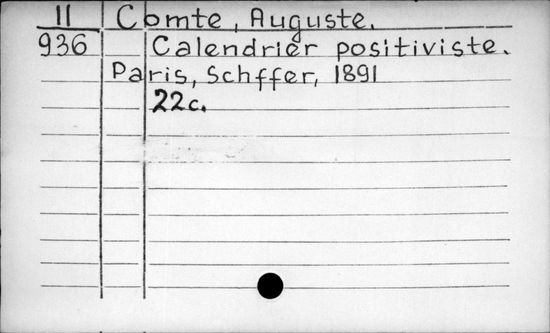 II Comte, Auguste.
936 Calendrier positiviste.
Paris, Schffer, 1891
22c.